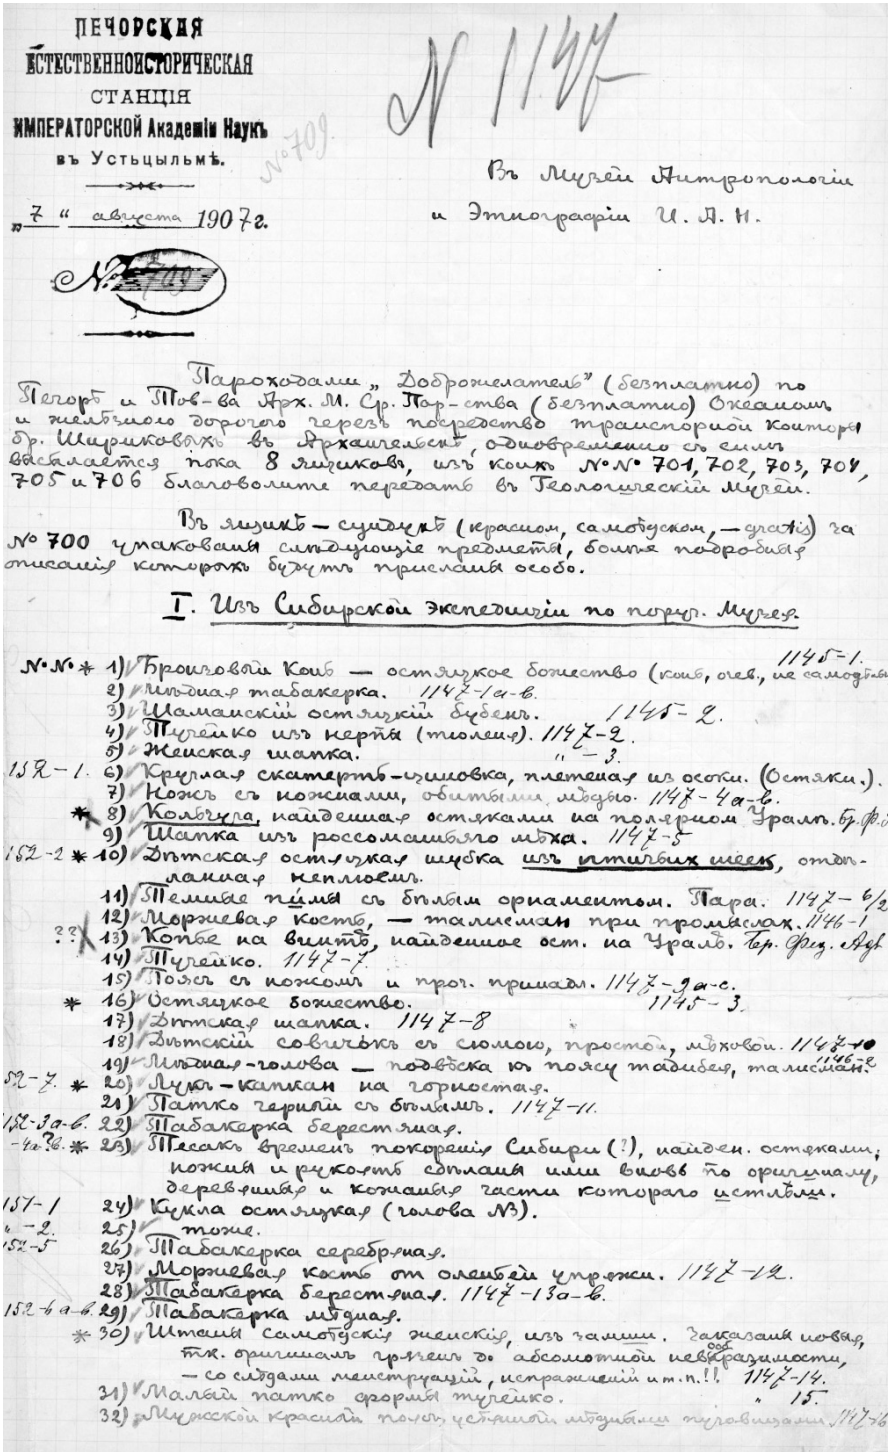 ПЕЧОРСКАЯ
ЕСТЕСТВЕННОИСТОРИЧЕСКАЯ
СТАНЦІЯ
ИМПЕРАТОРСКОЙ Академіи Наукъ
въ Устьцыльмѣ.
N 1147
№ 709.
„7“ августа 1907 г.
№ 709
Въ Музей Антропологіи
и Этнографіи И. А. Н.
Пароходами „Доброжелатель" (безплатно) по
Печорѣ и Тов-ва Арх. М. Ср. Пар-ства (безплатно) Океаномъ
и желѣзною дорогою черезъ посредство транспорной конторы
бр. Шириковыхъ въ Архангельскѣ, одновременно съ симъ
высылается пока 8 ящиковъ, изъ коихъ №№ 701, 702, 703, 704,
705 и 706 благоволите передать въ Геологическій Музей.
Въ ящикѣ – сундукѣ (красном, самоѣдском, – gratis) за
№ 700 упакованы слѣдующіе предметы, болѣе подробныя
описанія которыхъ будутъ присланы особо.
I. Изъ Сибирской экспедиціи по поруч. Музея.
1145-1.
№№ * 1) Бронзовый Конь – остяцкое божество (конь, очев., не самодѣльн
2) Мѣдная табакерка. 1147-1a-b.
3) Шаманскій остяцкій бубенъ. 1145-2.
4) Тучейко изъ нерпы (тюленя). 1147-2.
5) Женская шапка. " -3.
152-1. 6) Круглая скатерть-циновка, плетеная из осоки. (Остяки.).
7) Ножъ съ ножнами, обитыми мѣдью. 1147-4a-b.
* 8) Кольчуга, найденная остяками на полярном Уралѣ. Бр. Ф.
9) Шапка изъ россомашьяго мѣха. 1147-5
152-2 * 10) Дѣтская остяцкая шубка изъ птичьих шеек, отдѣ-
ланная неплюемъ.
11) Темные пимы съ бѣлым орнаментом. Пара. 1147-6/2
12) Моржевая кость, – талисман при промыслах. 1146-1
?? 13) Копье на винтѣ, найденное ост. на Уралѣ. Бр. Фед. Адв
14) Тучейко. 1147-7.
15) Поясъ съ ножомъ и проч. принадл. 1147-9a-c.
* 16) Остяцкое божество. 1145-3.
17) Дѣтская шапка. 1147-8
18) Дѣтскій совичокъ съ сюмою, простой, мѣховой. 1147-10
19) Мѣдная-голова – подвѣска къ поясу тадибея, талисман. 1146-2
52-7. * 20) Лукъ-капкан на горностая.
21) Патко черный съ бѣлымъ. 1147-11.
152-3a-b. 22) Табакерка берестяная.
-4a?b. * 23) Тесакъ времен покоренія Сибири (?), найден. остяками;
ножны и рукоять сдѣланы ими вновь по оригиналу,
деревянныя и кожаныя части котораго истлѣли.
151-1 24) Кукла остяцкая (голова №3).
" -2. 25) тоже.
152-5 26) Табакерка серебряная.
27) Моржевая кость от оленьей упряжи. 1147-12.
28) Табакерка берестяная. 1147-13a-b.
152-6a-b. 29) Табакерка мѣдная.
* 30) Штаны самоѣдскія женскія, изъ замши. Заказаны новыя,
тк. оригиналъ грязенъ до абсолютной невообразимости,
– со слѣдами менструацій, испражненій и т. п.!! 1147-14.
31) Малый патко формы тучейко. " 15.
32) Мужской красный поясъ усѣянный мѣдными пуговицами 1147-16